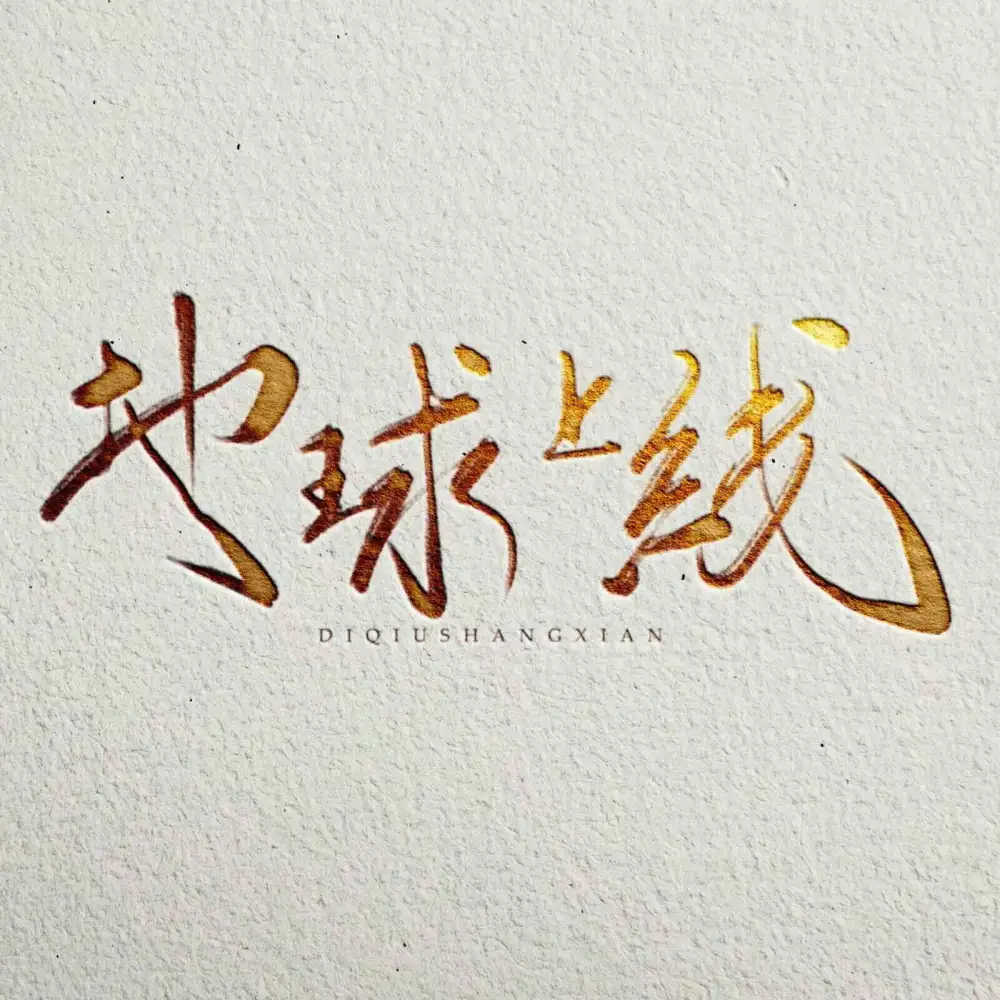 地球上线
DIQIUSHANGXIAN